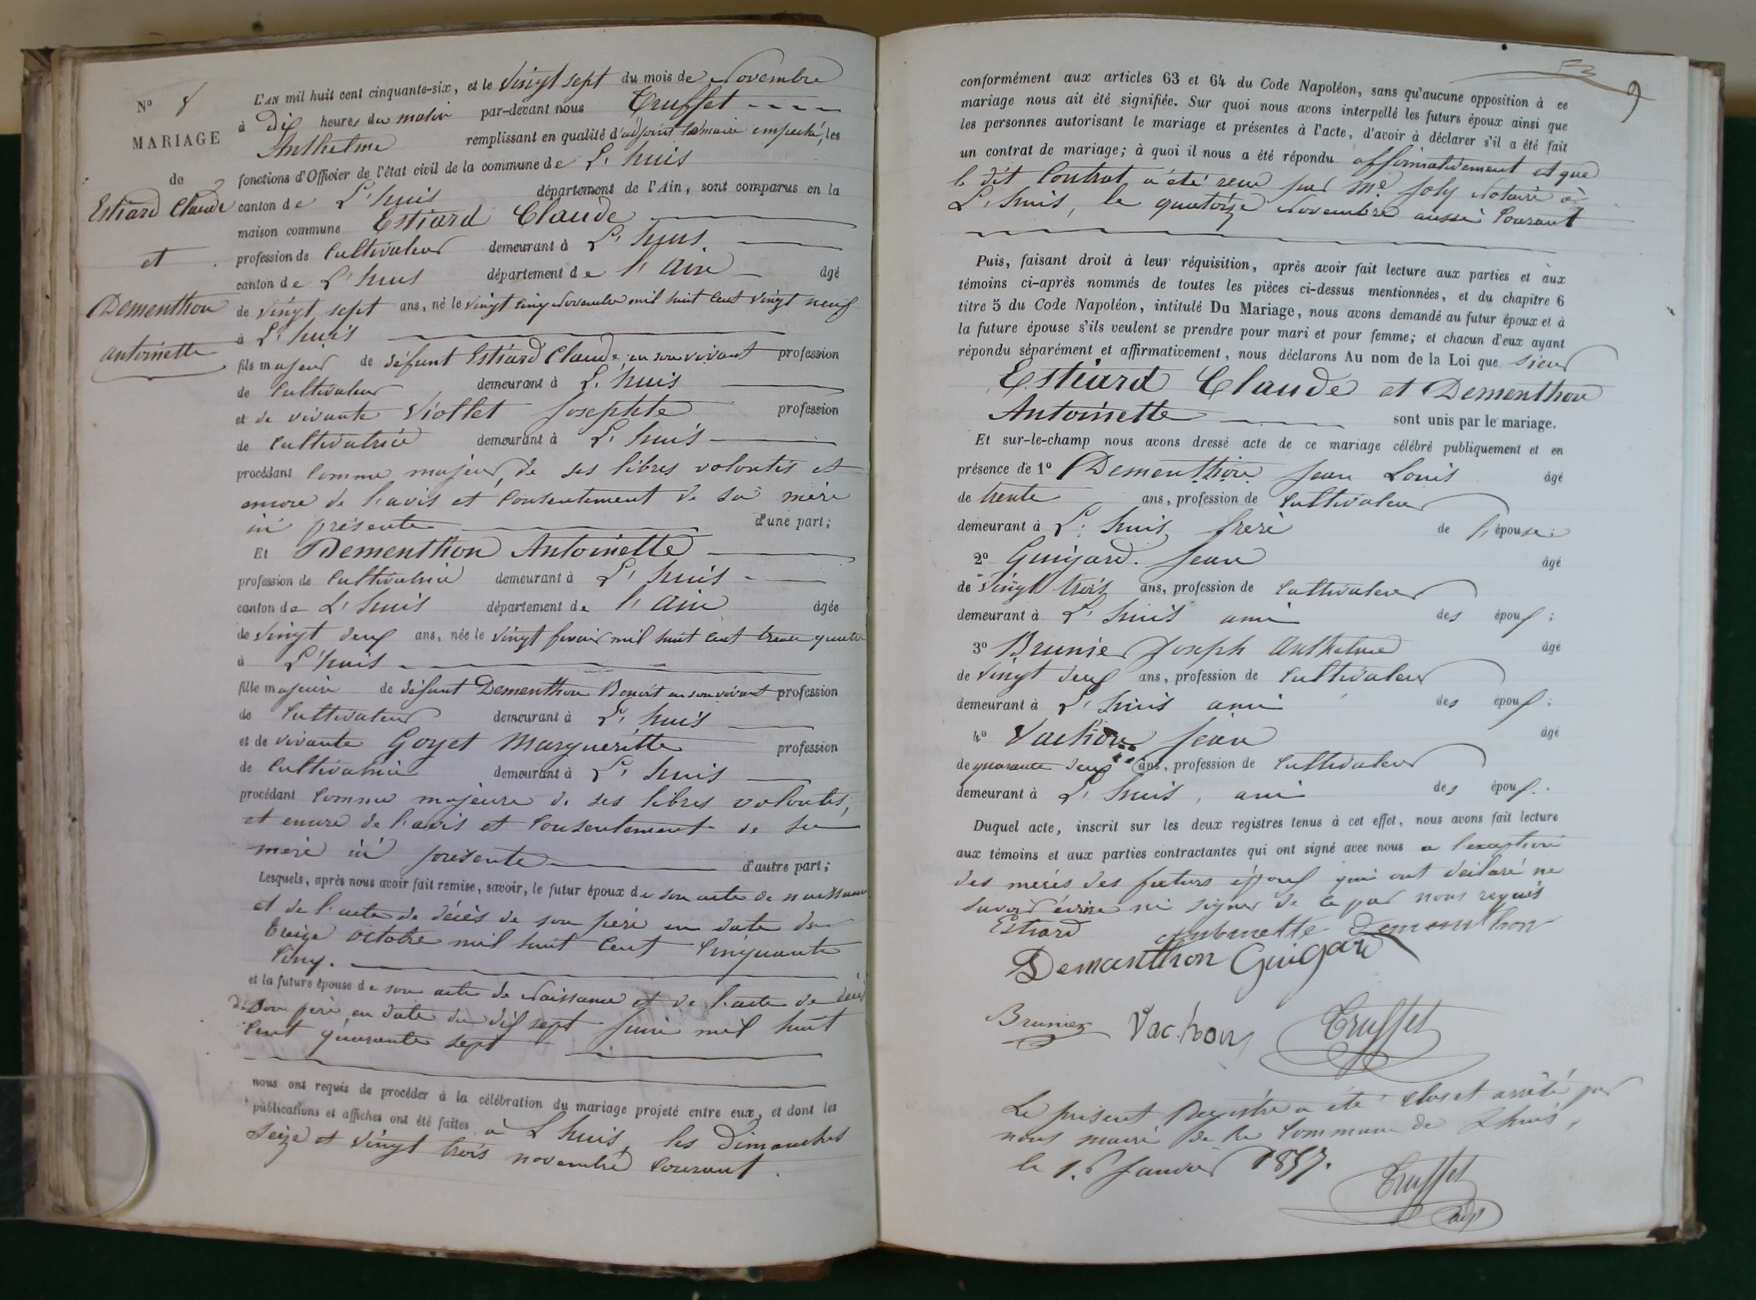 N° 8
MARIAGE
de
Estiard Claude
et
Dementhon
Antoinette
L'AN mil huit cent cinquante-six, et le Vingt sept du mois de Novembre
à Dix heures du matin par-devant nous Truffet
Anthelme remplissant en qualité d'adjoint le maire empeché, les
fonctions d'Officier de l'état civil de la commune de L'huis
canton de L'huis département de l'Ain, sont comparus en la
maison commune Estiard Claude
profession de Cultivateur demeurant à L'huis
canton de L'huis département de l'Ain âgé
de vingt sept ans, né le vingt cinq Novembre mil huit cent vingt neuf
à L'huis
fils majeur de défunt Estiard Claude en son vivant profession
de Cultivateur demeurant à L'huis
et de vivante Viollet Josephte profession
de Cultivatrice demeurant à L'huis
procédant comme majeur, de ses libres volontés et
encore de l'avis et consentement de sa mère
ici présente d'une part;
Et Dementhon Antoinette
profession de Cultivatrice demeurant à L'huis
canton de L'huis département de l'Ain âgée
de vingt deux ans, née le vingt fevrier mil huit cent trente quatre
à L'huis
fille majeure de défunt Dementhon Benoit en son vivant profession
de Cultivateur demeurant à L'huis
et de vivante Goyet Margueritte profession
de Cultivatrice demeurant à L'huis
procédant comme majeure de ses libres volontés,
et encore de l'avis et consentement de sa
mere ici présente d'autre part;
Lesquels, après nous avoir fait remise, savoir, le futur époux de son acte de naissance
et de l'acte de décès de son père en date du
treize octobre mil huit cent cinquante
cinq.
et la future épouse de son acte de Naissance et de l'acte de décès
de son père en date du dix sept Juin mil huit
cent quarante sept
nous ont requis de procéder à la célébration du mariage projeté entre eux, et dont les
publications et affiches ont été faites à L'huis, les Dimanches
seize et vingt trois novembre courant.
53
9
conformément aux articles 63 et 64 du Code Napoléon, sans qu'aucune opposition à ce
mariage nous ait été signifiée. Sur quoi nous avons interpellé les futurs époux ainsi que
les personnes autorisant le mariage et présentes à l'acte, d'avoir à déclarer s'il a été fait
un contrat de mariage; à quoi il nous a été répondu affirmativement et que
le dit Contrat a été recu par Me Joly Notaire à
L'huis, le quatorze Novembre aussi Courant
Puis, faisant droit à leur réquisition, après avoir fait lecture aux parties et aux
témoins ci-après nommés de toutes les pièces ci-dessus mentionnées, et du chapitre 6
titre 5 du Code Napoléon, intitulé Du Mariage, nous avons demandé au futur époux et à
la future épouse s'ils veulent se prendre pour mari et pour femme; et chacun d'eux ayant
répondu séparément et affirmativement, nous déclarons Au nom de la Loi que sieur
Estiard Claude et Dementhon
Antoinette sont unis par le mariage.
Et sur-le-champ nous avons dressé acte de ce mariage célébré publiquement et en
présence de 1° Dementhon Jean Louis âgé
de trente ans, profession de Cultivateur
demeurant à L'huis frère de l'épouse
2° Guigard Jean âgé
de vingt trois ans, profession de Cultivateur
demeurant à L'huis ami des époux;
3° Brunier Joseph Anthelme âgé
de vingt deux ans, profession de Cultivateur
demeurant à L'huis ami des époux;
4° Vachon Jean âgé
de quarante deux ans, profession de Cultivateur
demeurant à L'huis, ami des époux.
Duquel acte, inscrit sur les deux registres tenus à cet effet, nous avons fait lecture
aux témoins et aux parties contractantes qui ont signé avec nous a l'exception
des mères des futurs époux qui ont déclaré ne
savoir écrire ni signer de ce par nous requis
Estiard Antoinette Dementhon
Demanthon Guigard
Brunier Vachon Truffet
Le present Registre a été clos et arrêté par
nous maire de la Commune de Lhuis,
le 1er Janvier 1857.
Truffet
adjt